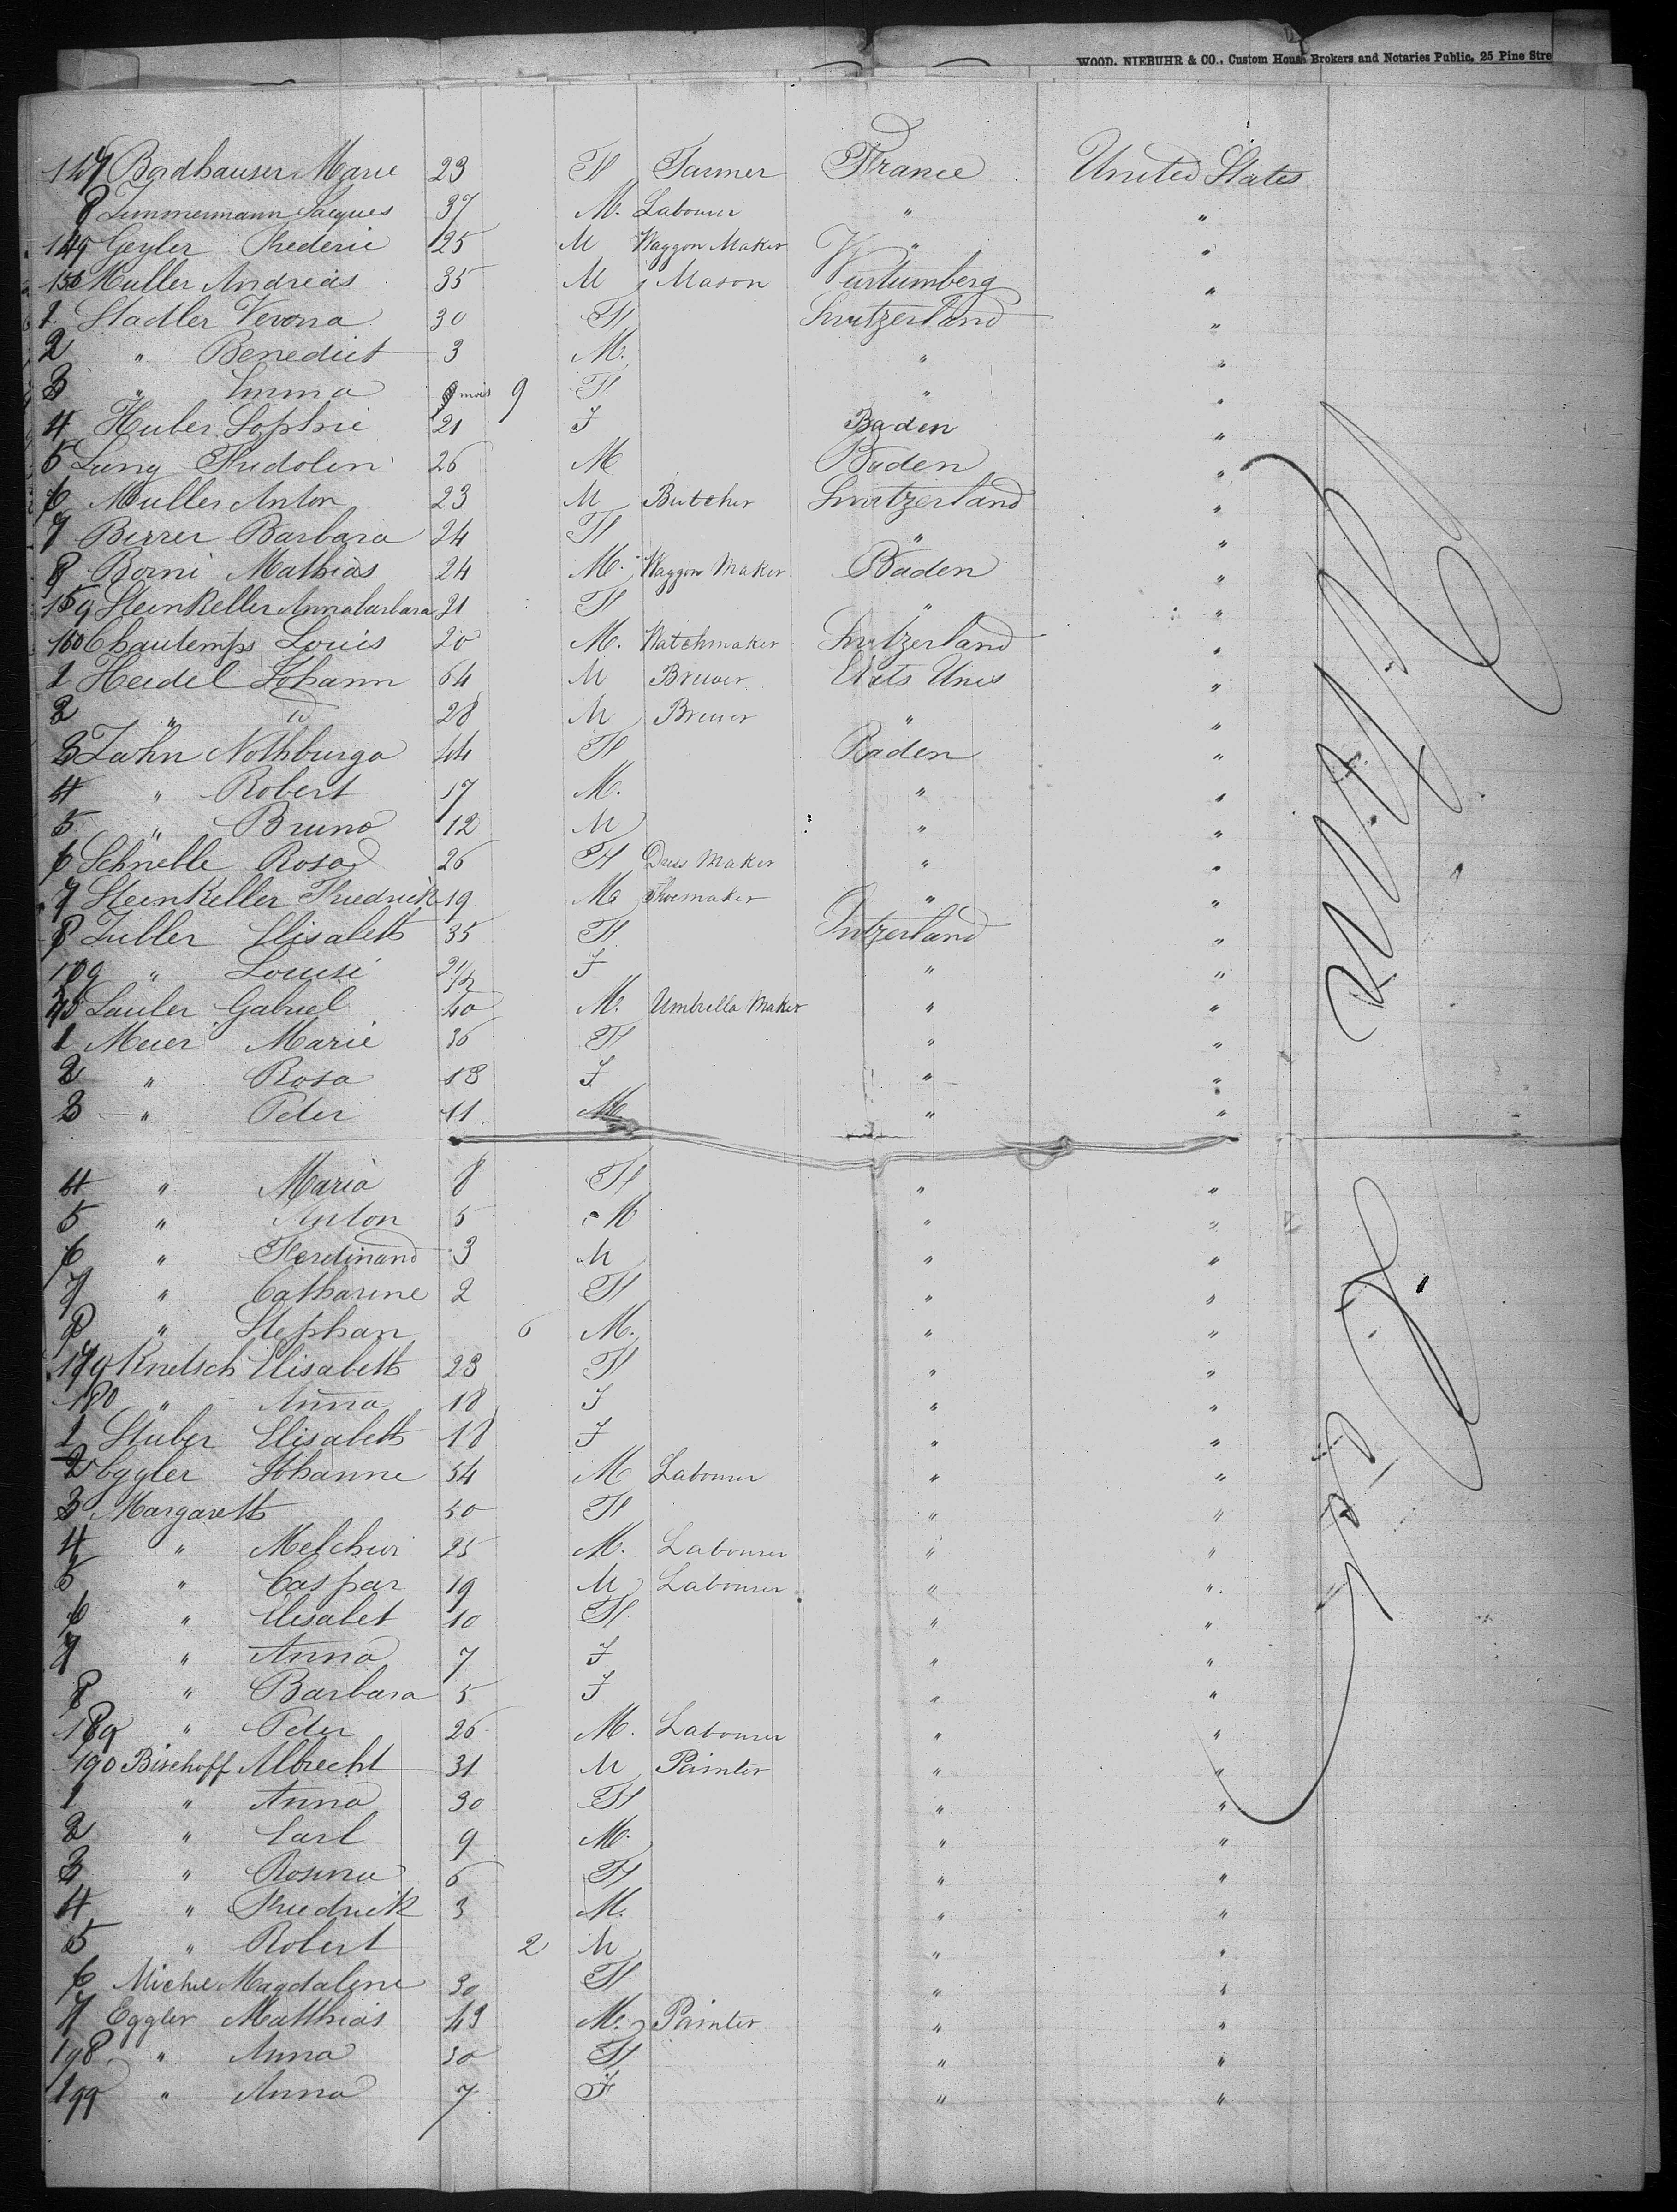 WOOD, NIEBUHR & CO., Custom House Brokers and Notaries Public, 25 Pine Stre
147 Bordhauser Marie 23 F Farmer France United States
8 Zimmermann Jacques 37 M. Labourer " "
149 Geyler Frederic 25 M Waggon Maker " "
150 Muller Andreas 35 M Mason Wurtumberg "
1 Stadler Verona 30 F Switzerland "
2 " Benedict 3 M. " "
3 " Emma 9 mois 9 F " "
4 Huber Sophie 21 F Baden "
5 Lung Fridolin 26 M Baden "
6 Muller Anton 23 M Butcher Switzerland "
7 Birrer Barbara 24 F " "
8 Borni Mathias 24 M. Waggon Maker Baden "
159 Steinkeller Annabarbara 21 F " "
160 Chautemps Louis 20 M. Watchmaker Switzerland "
1 Heidel Johann 64 M Brewer Etats Unis "
2 " id 28 M Brewer " "
3 Zahn Nothburga 44 F Baden "
4 " Robert 17 M. " "
5 " Bruno 12 M " "
6 Schnelle Rosa 26 F Dress Maker " "
7 Steinkeller Friedrick 19 M Shoemaker " "
8 Zubler Elisabeth 35 F Switzerland "
169 " Louise 2 1/2 F " "
170 Lauler Gabriel 40 M. Umbrella Maker " "
1 Meier Marie 36 F " "
2 " Rosa 13 F " "
3 " Peter 11. M " "
4 " Maria 8 F " "
5 " Anton 5 M " "
6 " Ferdinand 3 M " "
7 " Catharine 2 F " "
8 " Stephan 6 M. " "
179 Knetsch Elisabeth 23 F " "
180 " Anna 18 F " "
1 Stuber Elisabeth 18 F " "
2 Eggler Johanne 54 M Labourer " "
3 Margareth 50 F " "
4 " Melchior 25 M. Labourer " "
5 " Caspar 19 M Labourer " "
6 " Elisabet 10 F " "
7 " Anna 7 F " "
8 " Barbara 5 F " "
189 " Peter 26 M. Labourer " "
190 Bischoff Albrecht 31 M Painter " "
1 " Anna 30 F " "
2 " Carl 9 M. " "
3 " Rosina 6 F " "
4 " Friedrick 3 M. " "
5 " Robert 2 M " "
6 Michel Magdalene 30 F " "
7 Eggler Matthias 43 M. Painter " "
198 " Anna 30 F " "
199 " Anna 7 F " "